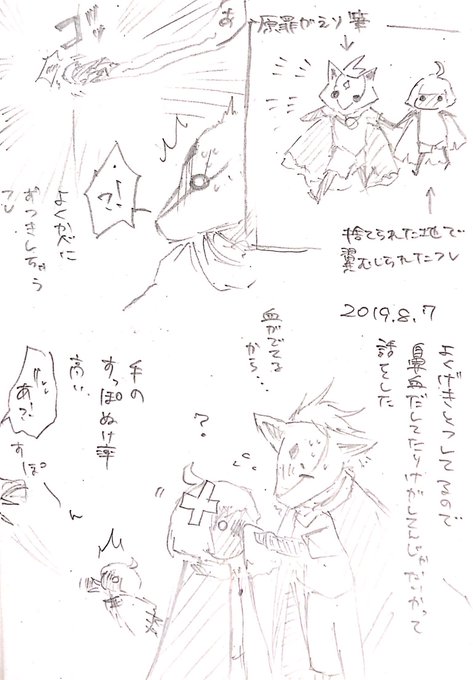 原罪がえり輩
捨てられた地で
翼むしられたフレ
2019.8.7
ゴッ
あ
!?
よくかべに
ずつきしちゃう
フレ
よくげきとつしてるので
鼻血だしてたりけがしてんじゃないかって
話をした
血がでてるから…
?
手の
すっぽぬけ率
高い
あ?!
すぽ